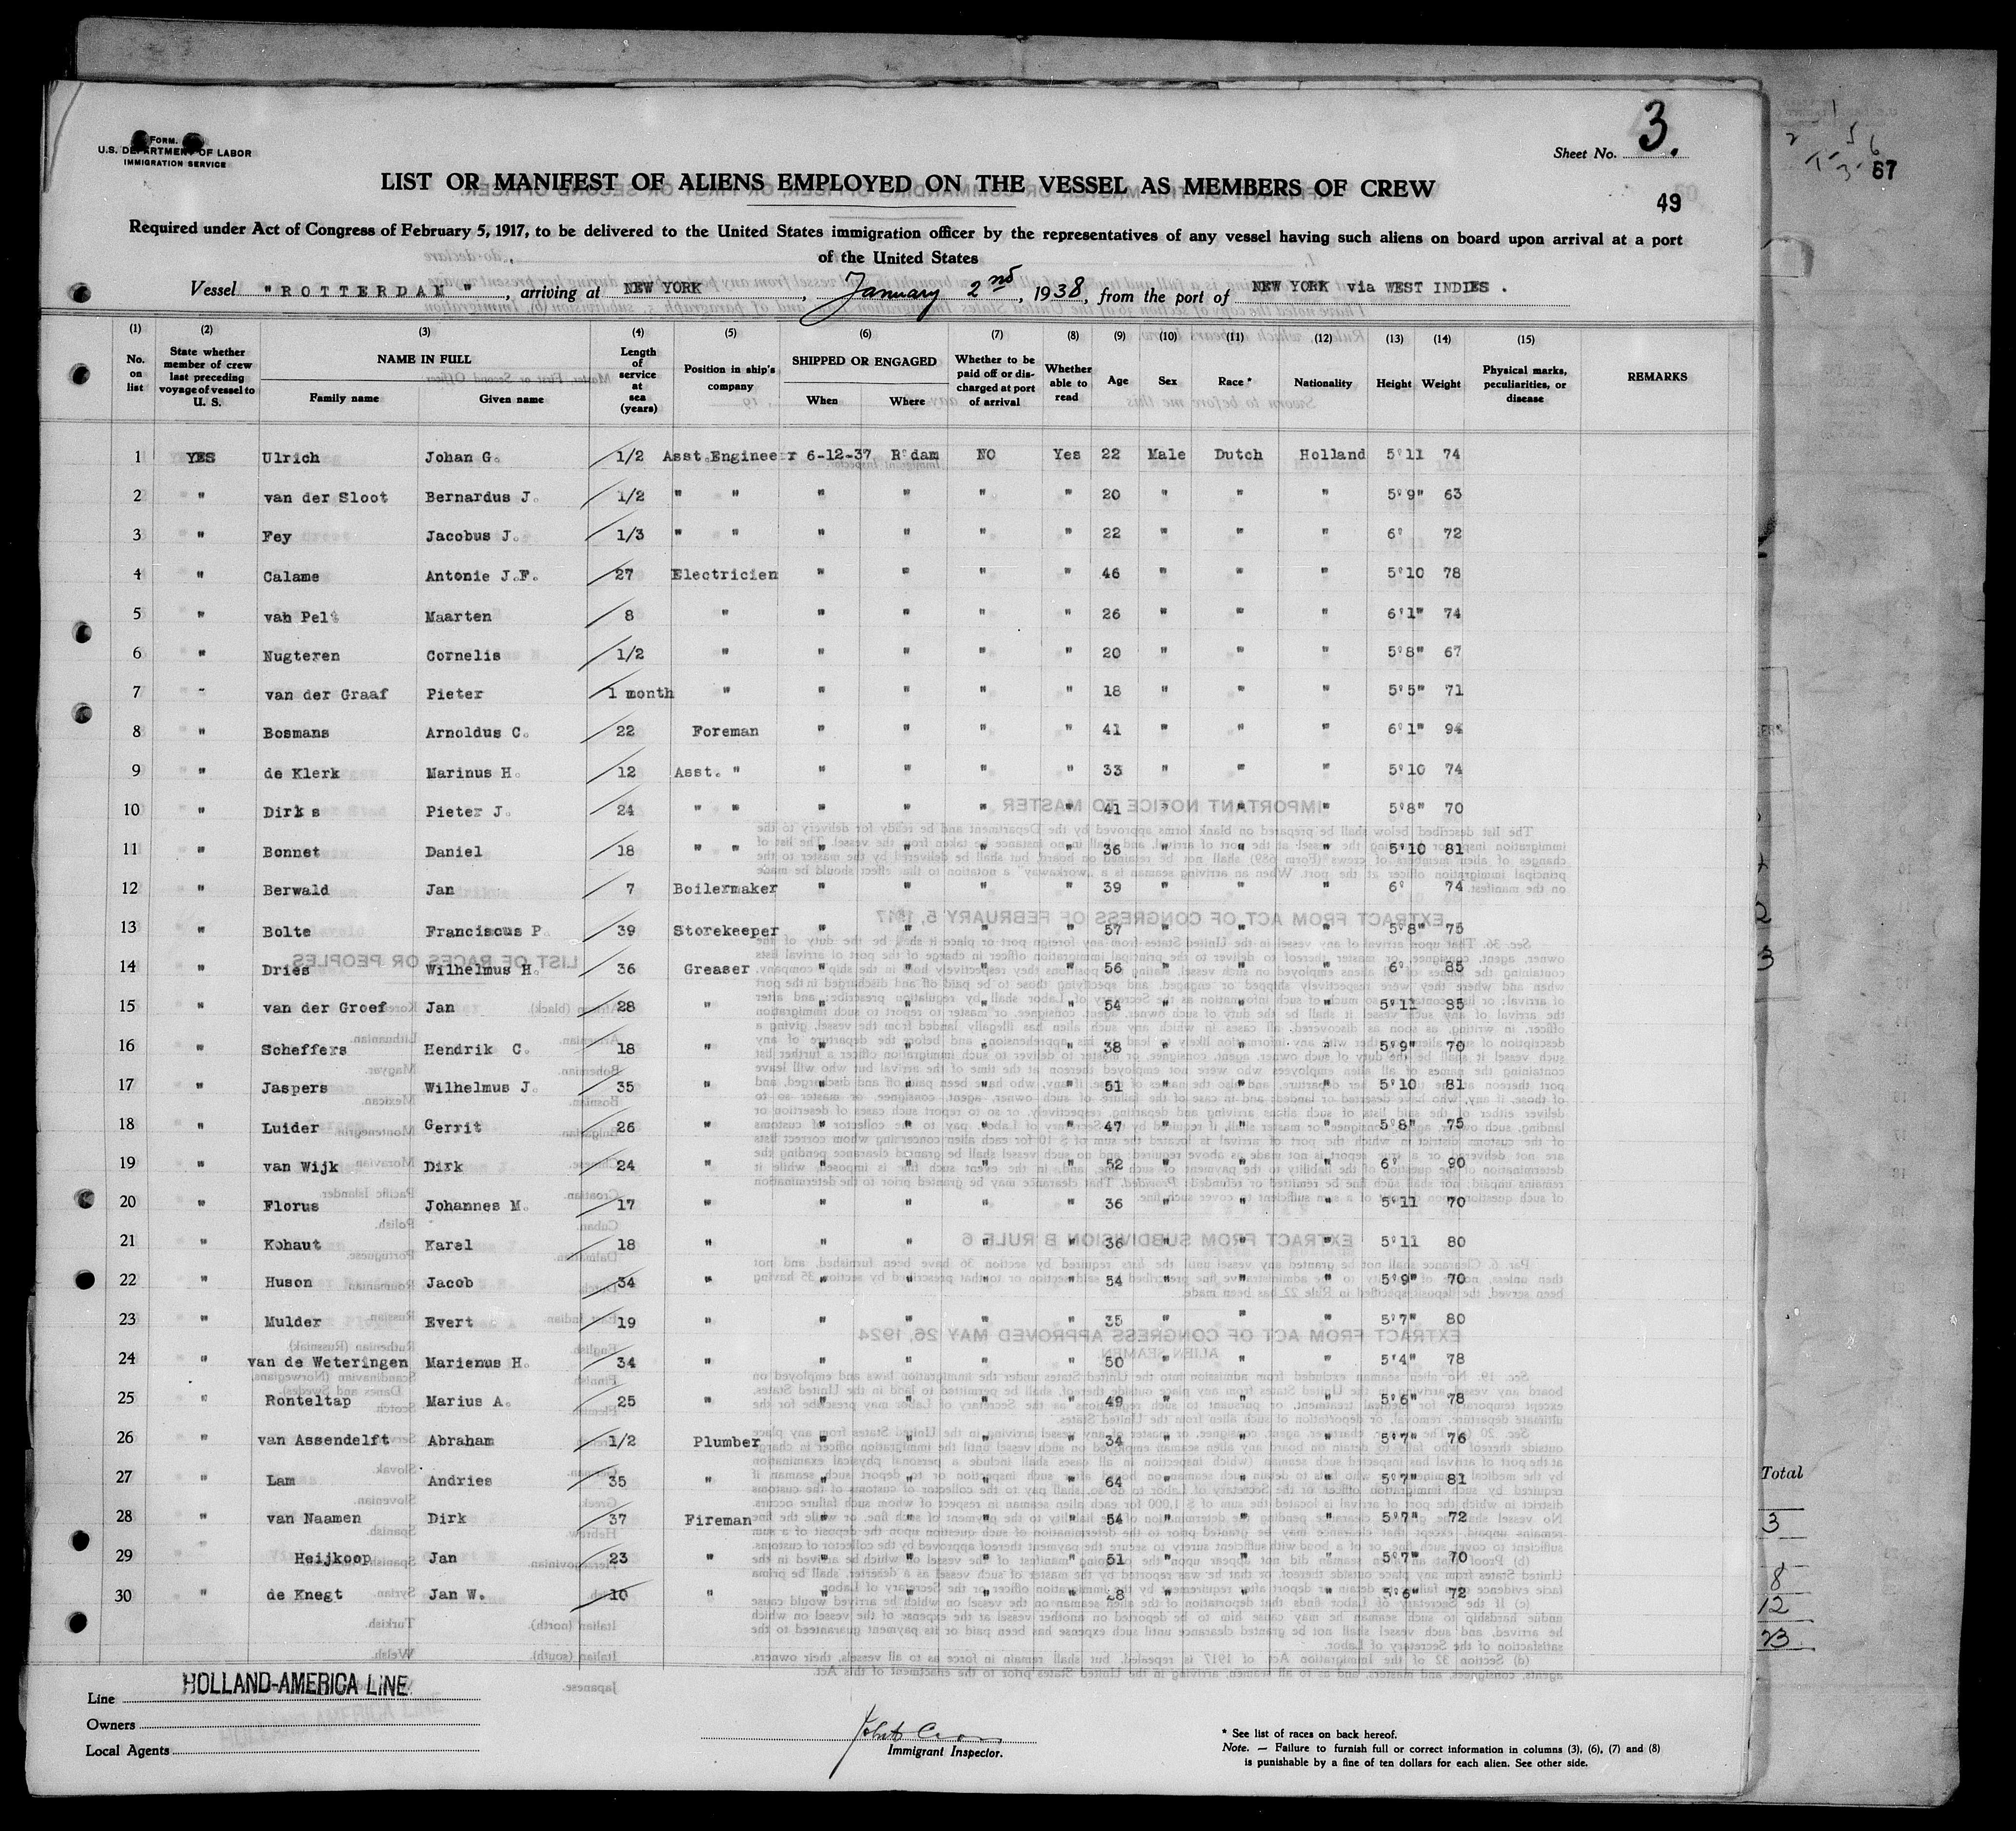 FORM.
U.S. DEPARTMENT OF LABOR
IMMIGRATION SERVICE
Sheet No. 3.
LIST OR MANIFEST OF ALIENS EMPLOYED ON THE VESSEL AS MEMBERS OF CREW
49
67
Required under Act of Congress of February 5, 1917, to be delivered to the United States immigration officer by the representatives of any vessel having such aliens on board upon arrival at a port
of the United States
Vessel "ROTTERDAM", arriving at NEW YORK, January 2nd, 1938, from the port of NEW YORK via WEST INDIES.
(1) No. on list (2) State whether member of crew last preceding voyage of vessel to U. S. (3) NAME IN FULL Family name Given name (4) Length of service at sea (years) (5) Position in ship's company (6) SHIPPED OR ENGAGED When Where (7) Whether to be paid off or discharged at port of arrival (8) Whether able to read (9) Age (10) Sex (11) Race * (12) Nationality (13) Height (14) Weight (15) Physical marks, peculiarities, or disease REMARKS
1 YES Ulrich Johan G. 1/2 Asst.Engineer 6-12-37 R'dam NO Yes 22 Male Dutch Holland 5'11 74
2 " van der Sloot Bernardus J. 1/2 " " " " " " 20 " " " 5'9" 63
3 " Fey Jacobus J. 1/3 " " " " " " 22 " " " 6' 72
4 " Calame Antonie J.F. 27 Electricien " " " " 46 " " " 5'10 78
5 " van Pelt Maarten 8 " " " " " 26 " " " 6'1" 74
6 " Nugteren Cornelis 1/2 " " " " " 20 " " " 5'8" 67
7 " van der Graaf Pieter 1 month " " " " " 18 " " " 5'5" 71
8 " Bosmans Arnoldus C. 22 Foreman " " " " 41 " " " 6'1" 94
9 " de Klerk Marinus H. 12 Asst. " " " " " 33 " " " 5'10 74
10 " Dirks Pieter J. 24 " " " " " " 41 " " " 5'8" 70
11 " Bonnet Daniel 18 " " " " " " 36 " " " 5'10 81
12 " Berwald Jan 7 Boilermaker " " " " 39 " " " 6' 74
13 " Bolte Franciscus P. 39 Storekeeper " " " " 57 " " " 5'8" 75
14 " Dries Wilhelmus H. 36 Greaser " " " " 56 " " " 6' 85
15 " van der Groef Jan 28 " " " " " 54 " " " 5'11 85
16 " Scheffers Hendrik C. 18 " " " " " 38 " " " 5'9" 70
17 " Jaspers Wilhelmus J. 35 " " " " " 51 " " " 5'10 81
18 " Luider Gerrit 26 " " " " " 47 " " " 5'8" 75
19 " van Wijk Dirk 24 " " " " " 52 " " " 6' 90
20 " Florus Johannes M. 17 " " " " " 36 " " " 5'11 70
21 " Kohaut Karel 18 " " " " " 36 " " " 5'11 80
22 " Huson Jacob 34 " " " " " 54 " " " 5'9" 70
23 " Mulder Evert 19 " " " " " 35 " " " 5'7" 80
24 " van de Weteringen Marienus H. 34 " " " " " 50 " " " 5'4" 78
25 " Ronteltap Marius A. 25 " " " " " 49 " " " 5'6" 78
26 " van Assendelft Abraham 1/2 Plumber " " " " 34 " " " 5'7" 76
27 " Lam Andries 35 " " " " " 64 " " " 5'7" 81
28 " van Naamen Dirk 37 Fireman " " " " 54 " " " 5'7" 72
29 " Heijkoop Jan 23 " " " " " 51 " " " 5'7" 70
30 " de Knegt Jan W. 10 " " " " " 28 " " " 5'6" 72
Total
3
8
12
23
Line HOLLAND-AMERICA LINE
Owners
Local Agents
Immigrant Inspector.
* See list of races on back hereof.
Note. — Failure to furnish full or correct information in columns (3), (6), (7) and (8)
is punishable by a fine of ten dollars for each alien. See other side.